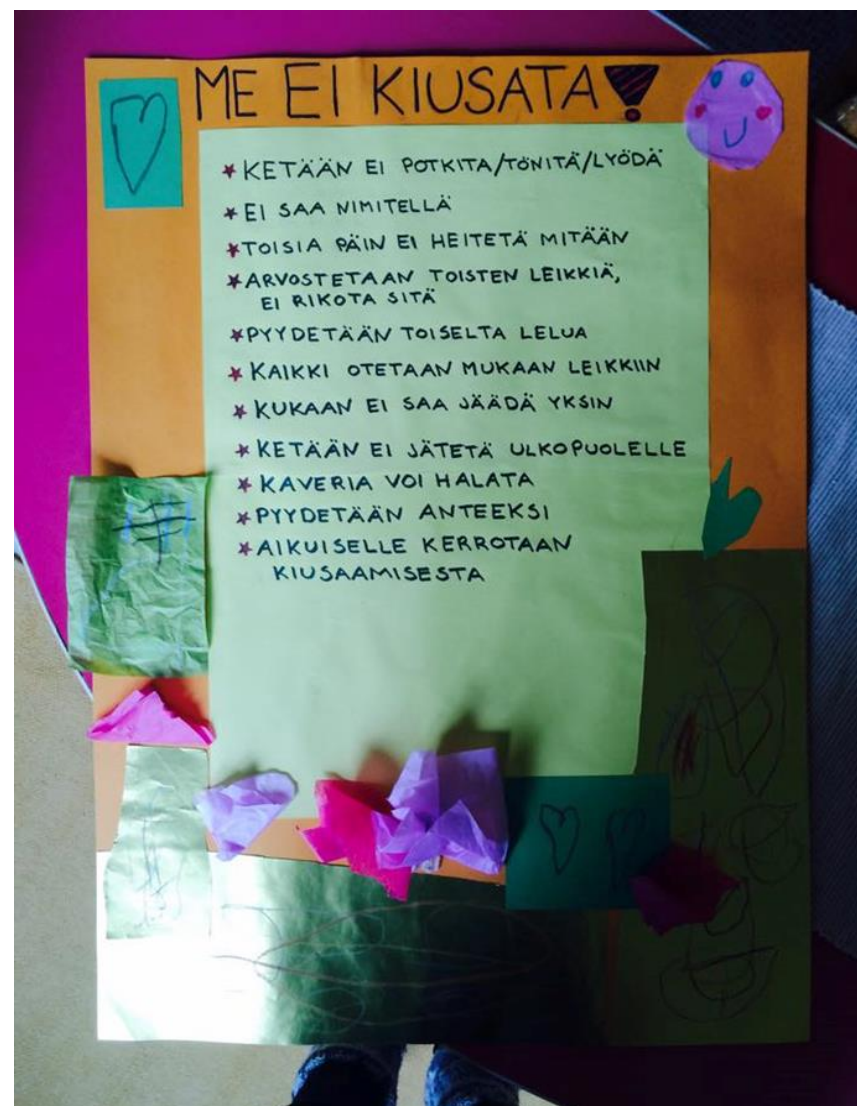 ME EI KIUSATA!
* KETÄÄN EI POTKITA/TÖNITÄ/LYÖDÄ
* EI SAA NIMITELLÄ
* TOISIA PÄIN EI HEITETÄ MITÄÄN
* ARVOSTETAAN TOISTEN LEIKKIÄ,
EI RIKOTA SITÄ
* PYYDETÄÄN TOISELTA LELUA
* KAIKKI OTETAAN MUKAAN LEIKKIIN
* KUKAAN EI SAA JÄÄDÄ YKSIN
* KETÄÄN EI JÄTETÄ ULKOPUOLELLE
* KAVERIA VOI HALATA
* PYYDETÄÄN ANTEEKSI
* AIKUISELLE KERROTAAN
KIUSAAMISESTA